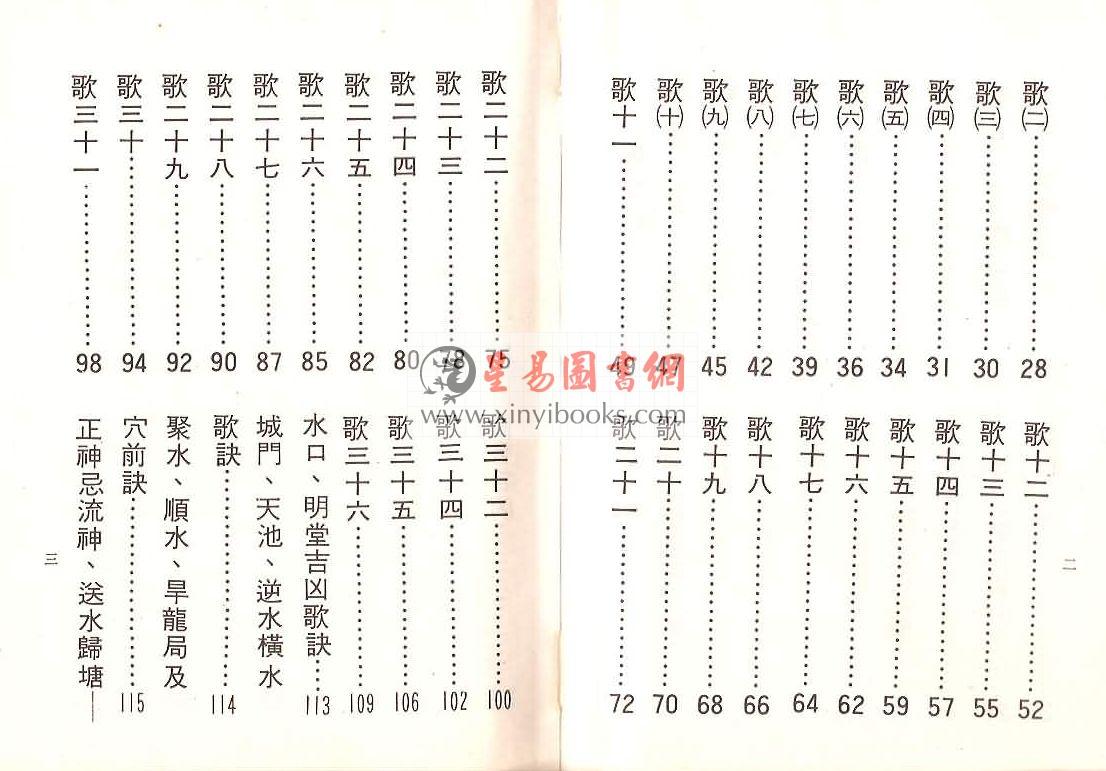 歌㈡……28
歌㈢……30
歌㈣……31
歌㈤……34
歌㈥……36
歌㈦……39
歌㈧……42
歌㈨……45
歌㈩……47
歌十一……49
歌十二……52
歌十三……55
歌十四……57
歌十五……59
歌十六……62
歌十七……64
歌十八……66
歌十九……68
歌二十……70
歌二十一……72
二
歌二十二……75
歌二十三……78
歌二十四……80
歌二十五……82
歌二十六……85
歌二十七……87
歌二十八……90
歌二十九……92
歌三十……94
歌三十一……98
歌三十二……100
歌三十四……102
歌三十五……106
歌三十六……109
水口、明堂吉凶歌訣……113
城門、天池、逆水橫水
歌訣……114
聚水、順水、旱龍局及
穴前訣……115
正神忌流神、送水歸塘——
三
星易圖書網
www.xinyibooks.com